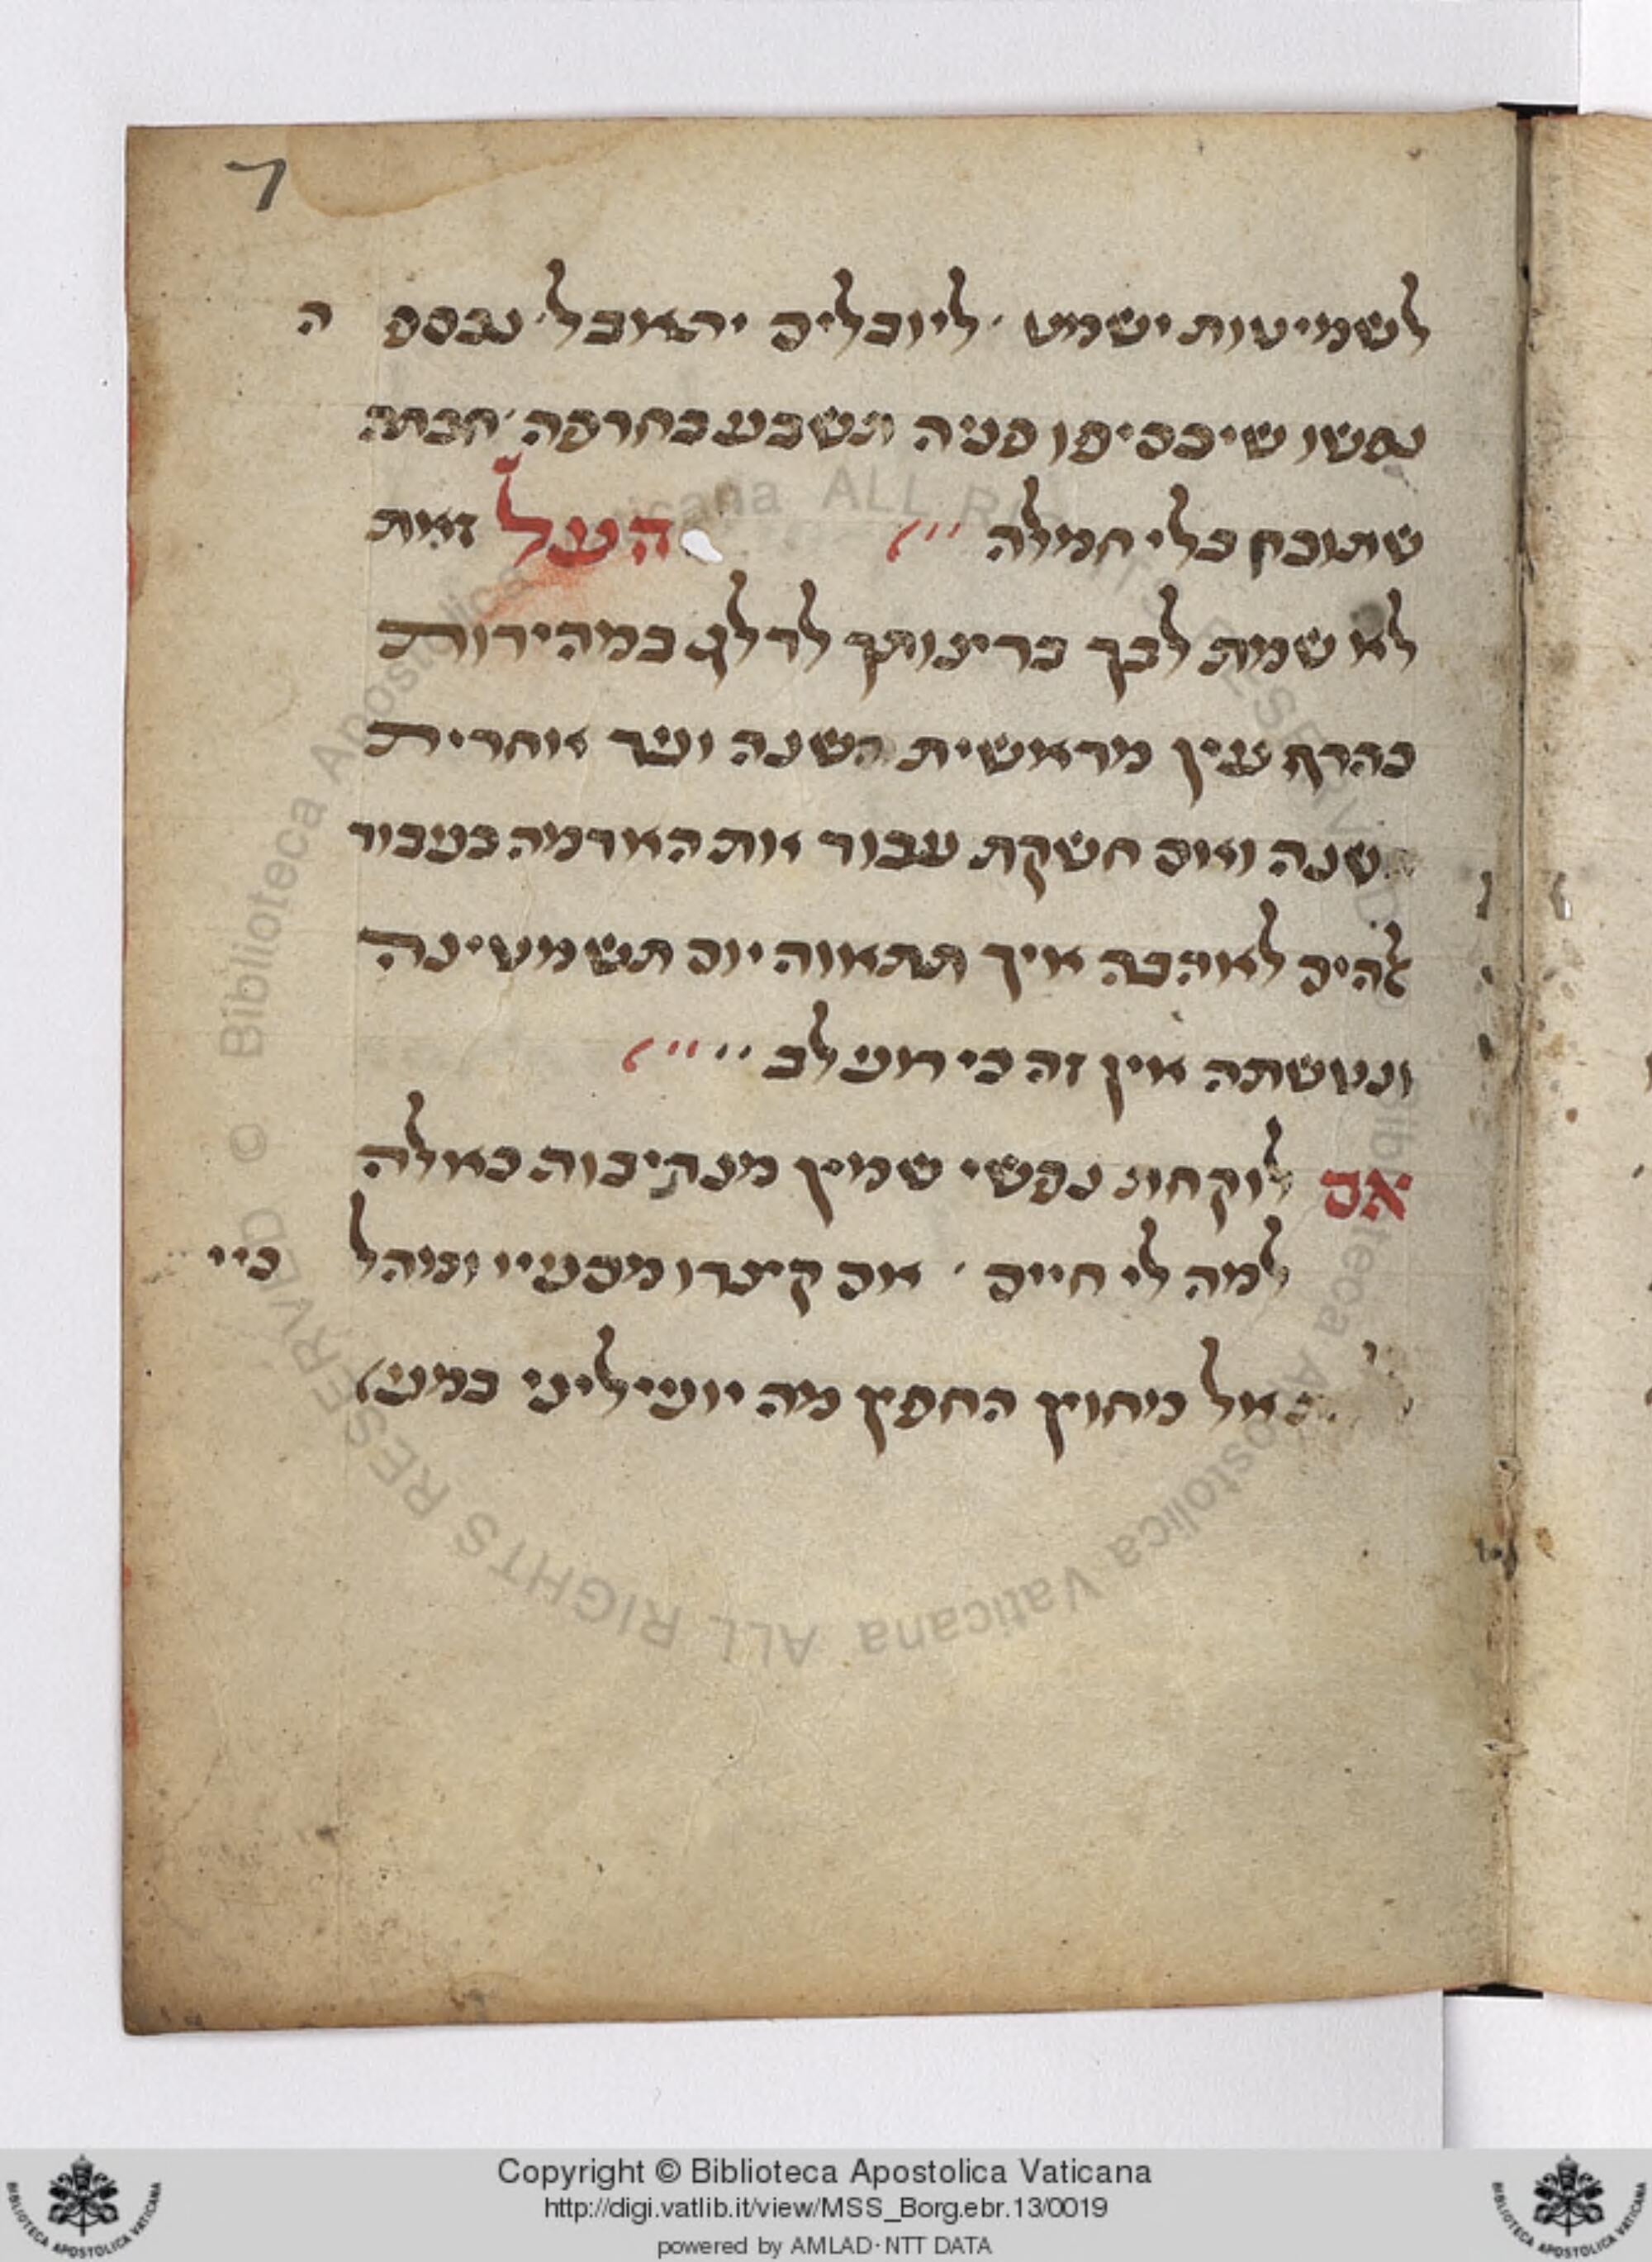 7
לשמיטות ישמט ׳ ליובלים יתאבל ׳ ה
שיכסיפו פניה תשבע בחרפה ׳
שתוכח בלי חמלה העל זאת
לא שמת לבך ברינותך לדלג במהירות
כהרף עין מראשית השנה ועד אחרית
שנה ואם חשקת עבוד את האדמה בעבור
להים לאהבה איך תתאוה יום תשמטינה
ונטשתה אין זה כי רוע לב
אם לוקחת נפשי שמץ מנתיבות כאלה
למה לי חיים ׳ אם קיצרו מפניי כיי
כחוץ החפץ מה יועיליני
Copyright © Biblioteca Apostolica Vaticana
http://digi.vatlib.it/view/MSS_Borg.ebr.13/0019
powered by AMLAD·NTT DATA